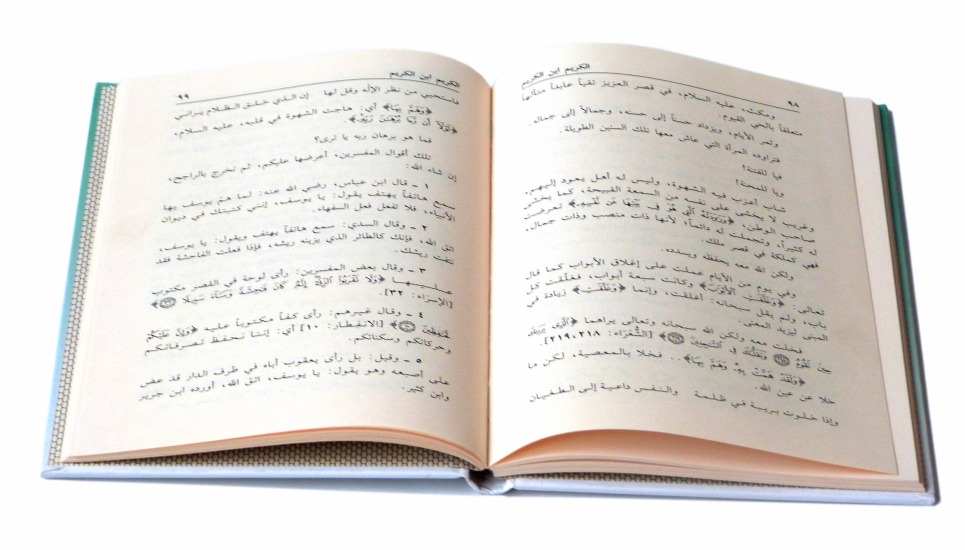 ٩٨ الكريم ابن الكريم
ومكث، عليه السلام، في قصر العزيز تقياً عابداً حتالها
متعلقاً بالحي القيوم.
وتمر الأيام، ويزداد حسناً إلى حسنه، وجمالاً إلى جماله.
فتراوده المرأة التي عاش معها تلك السنين الطويلة.
فيا للفتنة!
ويا للمحنة!
شاب أعزب فيه الشهوة، وليس له أهل يعود إليهم.
وغريب لا يخشى على نفسه من السمعة القبيحة، كما يخشى
صاحب الوطن، ﴿وَرَاوَدَتْهُ الَّتِي هُوَ فِي بَيْتِهَا عَن نَّفْسِهِ﴾ تعرضت
له كثيراً، وتجملت له دائماً؛ لأنها ذات منصب وذات جمال،
فهي كملكة في قصر ملك.
ولكن الله معه يحفظه ويسدده.
وفي يوم من الأيام عملت على إغلاق الأبواب كما قال
تعالى ﴿وَغَلَّقَتِ الْأَبْوَابَ﴾ وكانت سبعة أبواب، فغلقت كل
باب، ولم يقل سبحانه: أغلقت، وإنما ﴿وَغَلَّقَتِ﴾ زيادة في
المبنى ليزيد المعنى.
فخلت معه ولكن الله سبحانه وتعالى يراهما ﴿الَّذِي يَرَاكَ
حِينَ تَقُومُ ۝ وَتَقَلُّبَكَ فِي السَّاجِدِينَ ۝﴾ [الشُّعَرَاء: ٢١٨، ٢١٩].
﴿وَلَقَدْ هَمَّتْ بِهِ وَهَمَّ بِهَا﴾ .. فخلا بالمعصية، لكن ما
خلا عن عين الله.
وإذا خلوت بريبة في ظلمة والنفس داعية إلى الطغيان
الكريم ابن الكريم ٩٩
فاستحيي من نظر الإله وقل لها إن الذي خلق الظلام يراني
﴿وَهَمَّ بِهَا﴾ أي: هاجت الشهوة في قلبه، عليه السلام،
﴿لَوْلَا أَن رَّأَىٰ بُرْهَانَ رَبِّهِ﴾
فما هو برهان ربه يا ترى؟
تلك أقوال المفسرين، أعرضها عليكم، ثم نخرج بالراجح،
إن شاء الله:
١ - قال ابن عباس، رضي الله عنه: لما هم يوسف بها
سمع هاتفاً يهتف يقول: يا يوسف، إنني كتبتك في ديوان
الأنبياء، فلا تفعل فعل السفهاء.
٢ - وقال السدي: سمع هاتفاً يهتف ويقول: يا يوسف،
اتق الله، فإنك كالطائر الذي يزينه ريشه، فإذا فعلت الفاحشة فقد
نتفت ريشك.
٣ - وقال بعض المفسرين: رأى لوحة في القصر مكتوب
عليها ﴿وَلَا تَقْرَبُوا الزِّنَىٰ إِنَّهُ كَانَ فَاحِشَةً وَسَاءَ سَبِيلًا ۝﴾
[الإسرَاء: ٣٢].
٤ - وقال غيرهم: رأى كفاً مكتوباً عليه ﴿وَإِنَّ عَلَيْكُمْ
لَحَافِظِينَ ۝﴾ [الانفِطار: ١٠] أي: إننا نحفظ تصرفاتكم
وحركاتكم وسكناتكم.
٥ - وقيل: بل رأى يعقوب أباه في طرف الدار قد عض
على أصبعه وهو يقول: يا يوسف، اتق الله، أورده ابن جرير
وابن كثير.